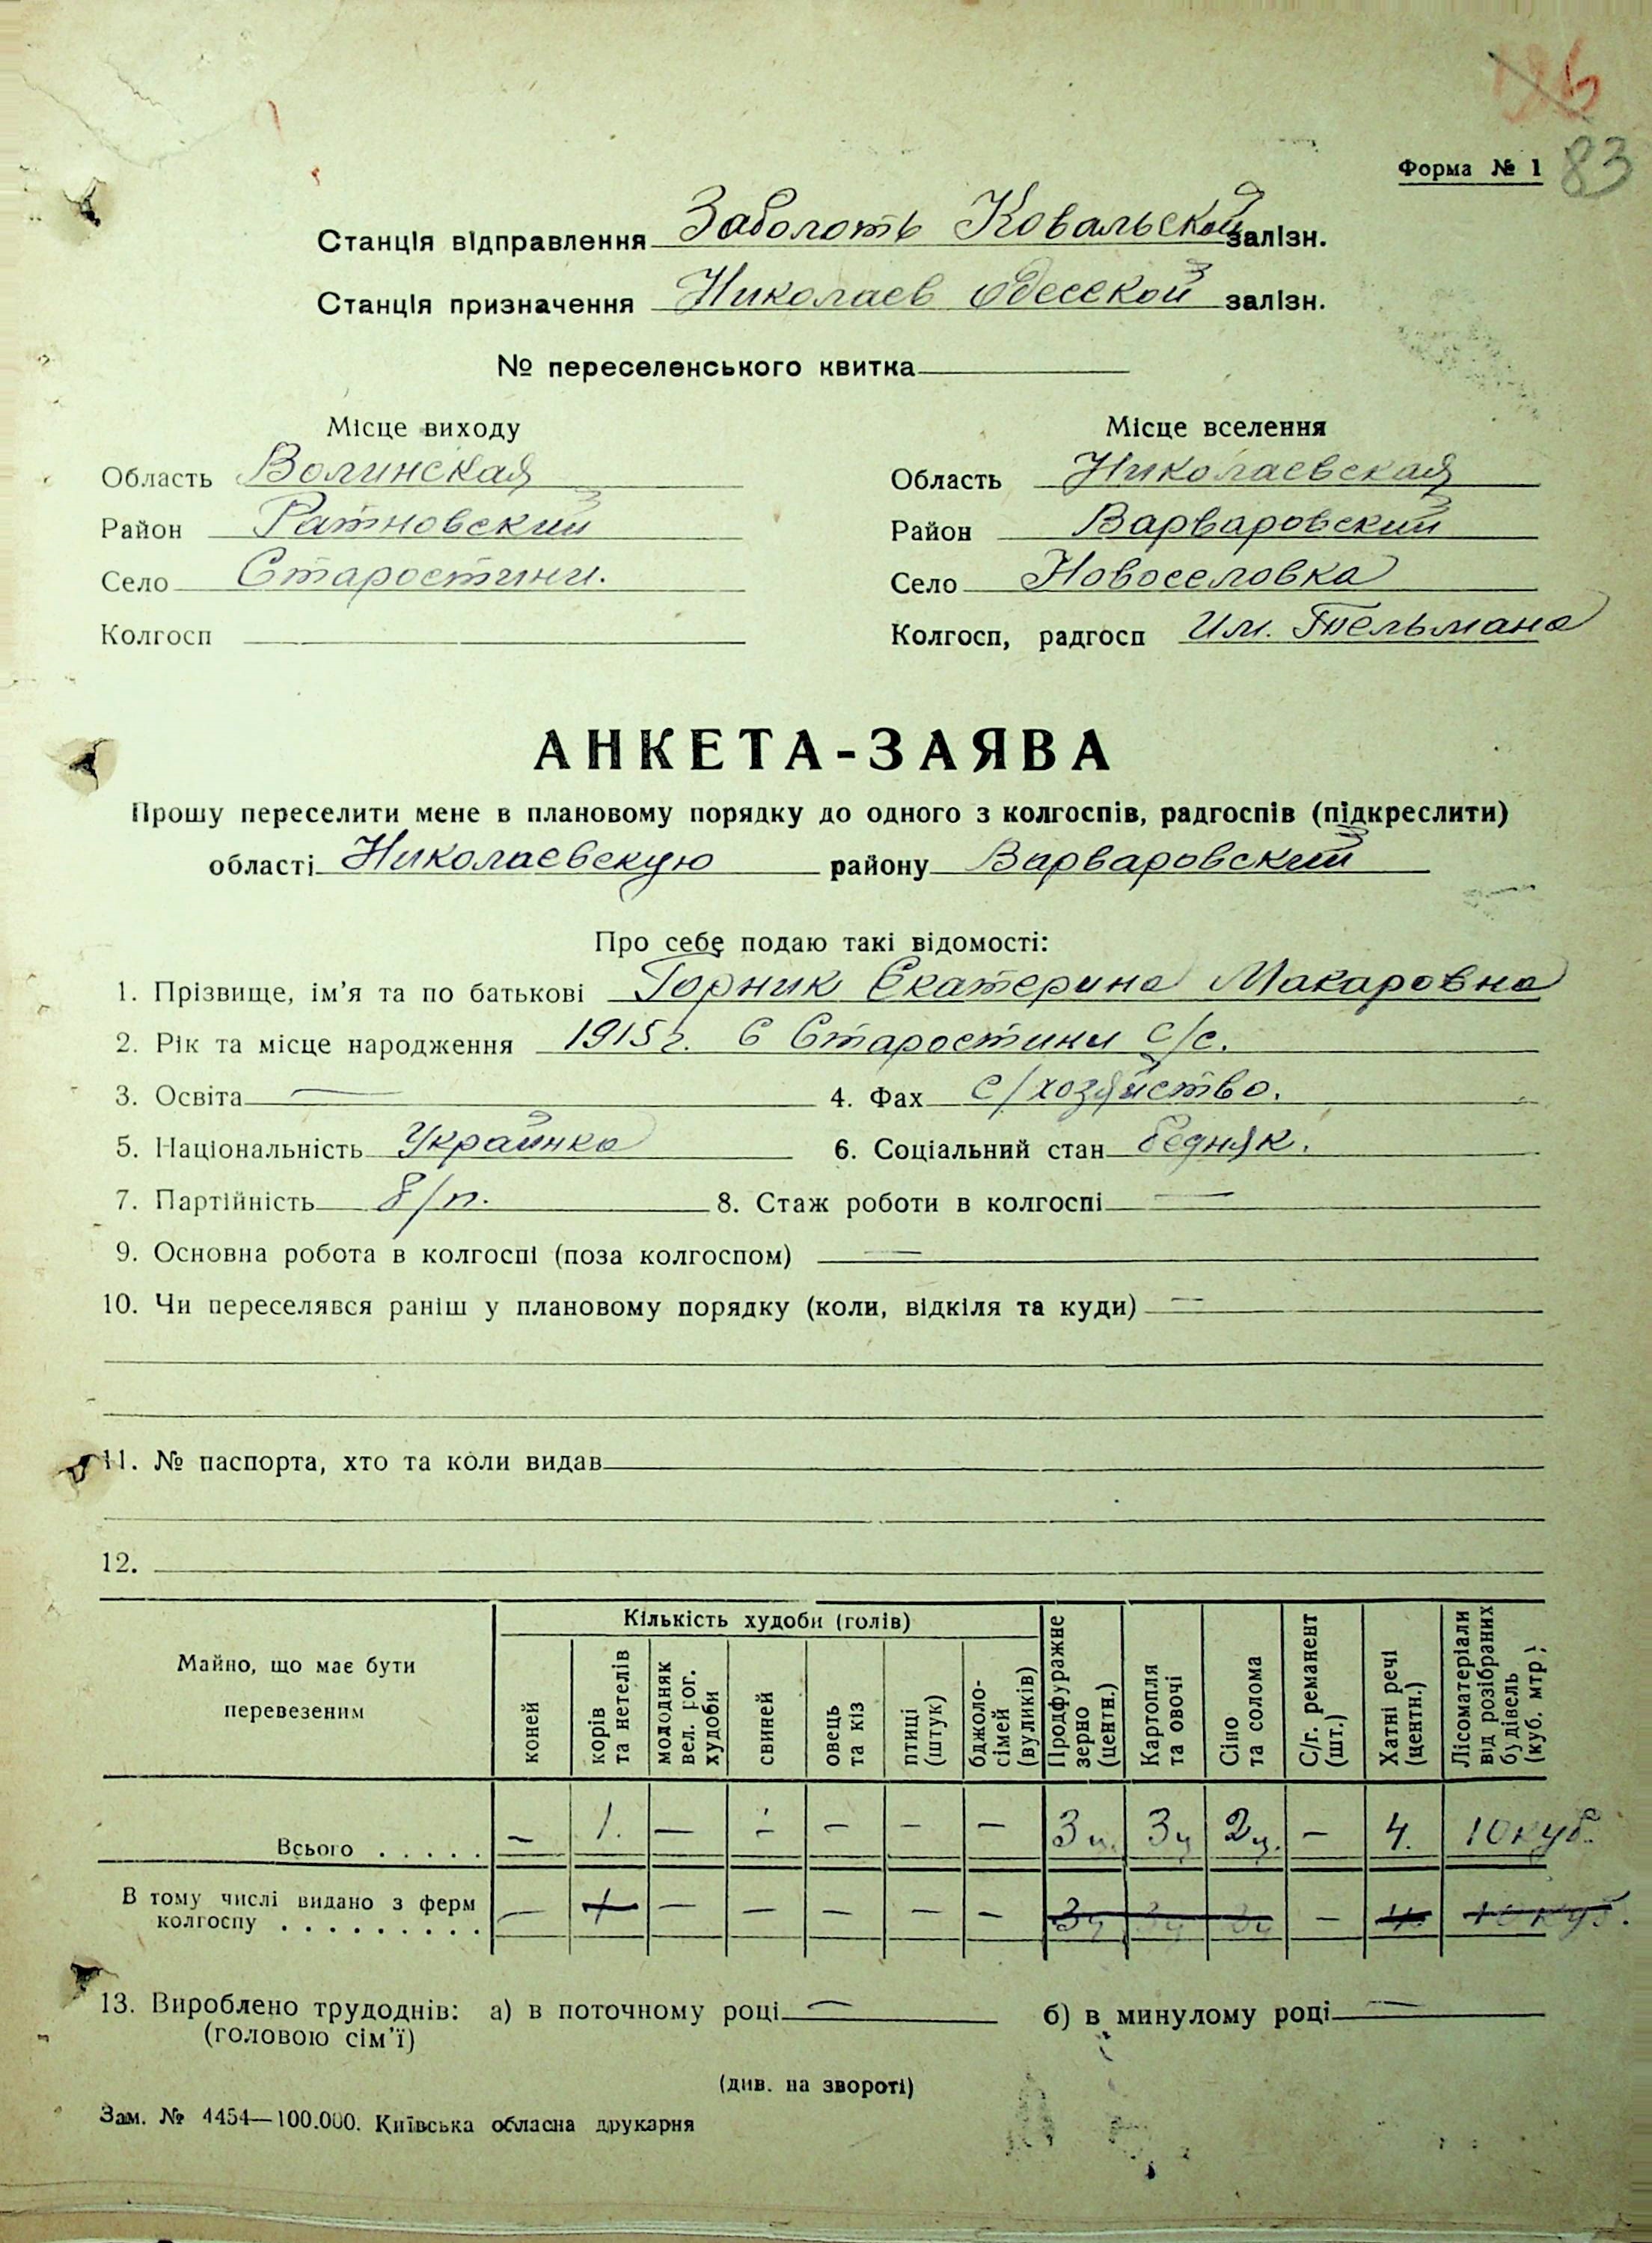 126
Форма № 1 83
Станція відправлення Заболоть Ковальской залізн.
Станція призначення Николаев Одесской залізн.
№ переселенського квитка
Місце виходу
Область Волинская
Район Ратновский
Село Старостини.
Колгосп
Місце вселення
Область Николаевская
Район Варваровский
Село Новоселовка
Колгосп, радгосп Им. Тельмана
АНКЕТА-ЗАЯВА
Прошу переселити мене в плановому порядку до одного з колгоспів, радгоспів (підкреслити)
області Николаевскую району Варваровский
Про себе подаю такі відомості:
1. Прізвище, ім’я та по батькові Горник Екатерина Макаровна
2. Рік та місце народження 1915 г. С Старостини с/с.
3. Освіта — 4. Фах с/хозяйство.
5. Національність Украинка 6. Соціальний стан бедняк.
7. Партійність б/п. 8. Стаж роботи в колгоспі —
9. Основна робота в колгоспі (поза колгоспом) —
10. Чи переселявся раніш у плановому порядку (коли, відкіля та куди) —
11. № паспорта, хто та коли видав
12.
Майно, що має бути перевезеним
Кількість худоби (голів)
коней
корів та нетелів
молодняк вел. рог. худоби
свиней
овець та кіз
птиці (штук)
бджоло-сімей (вуликів)
Продфуражне зерно (центн.)
Картопля та овочі
Сіно та солома
С/г. реманент (шт.)
Хатні речі (центн.)
Лісоматеріали від розібраних будівель (куб. мтр.)
Всього . . . . . — 1. — — — — — 3 ц. 3 ц 2 ц. — 4. 10 куб.
В тому числі видано з ферм
колгоспу . . . . . . . . . — 1 — — — — — 3ц 3ц 3ц — 4. 10 куб.
13. Вироблено трудоднів: а) в поточному році — б) в минулому році —
(головою сім’ї)
(див. на звороті)
Зам. № 4454—100.000. Київська обласна друкарня